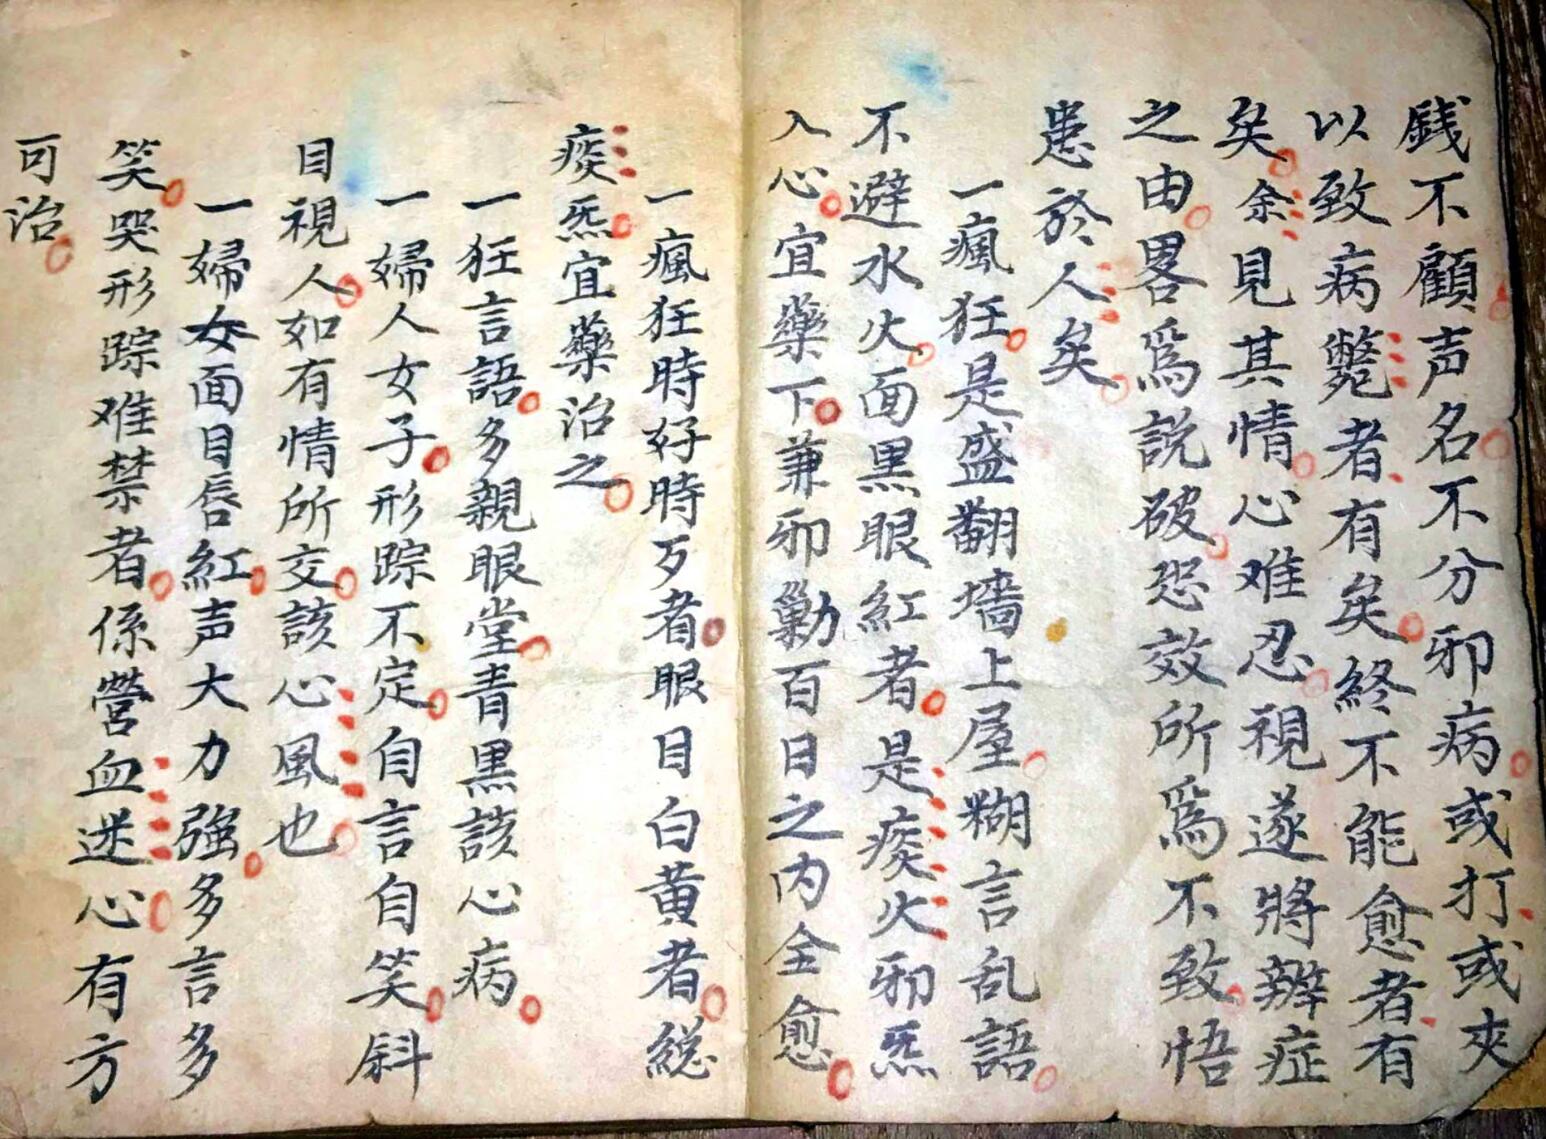 銭不顧声名不分邪病或打或夾
以致病斃者有矣終不能愈者有
矣余見其情心难忍視遂將辨症
之由畧爲説破恐效所爲不致悟
患於人矣
一瘋狂是盛翻墻上屋糊言乱語
不避水火面黒眼紅者是痰火邪炁
入心宜藥下兼邪勦百日之内全愈
一瘋狂時好時歹者眼目白黄者緫
痰炁宜藥治之
一狂言語多親眼堂青黒該心病
一婦人女子形踪不定自言自笑斜
目視人如有情所交該心風也
一婦女面目唇紅声大力強多言多
笑哭形踪难禁者係營血迷心有方
可治